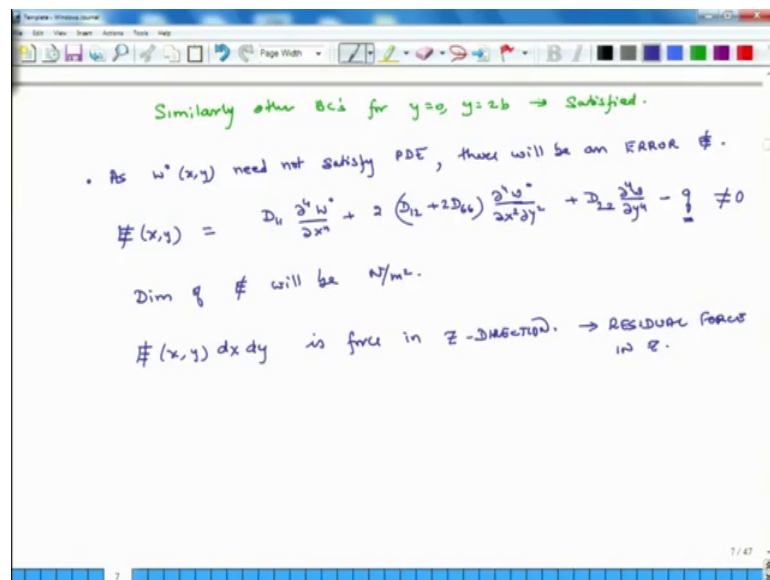 Template - Windows Journal
File Edit View Insert Actions Tools Help
Page Width
Similarly other BC's for y=0, y=2b → Satisfied.
• As w°(x,y) need not satisfy PDE, there will be an ERROR E̸.
E̸(x,y) = D₁₁ ∂⁴w°/∂x⁴ + 2 (D₁₂ + 2D₆₆) ∂⁴w°/∂x²∂y² + D₂₂ ∂⁴w/∂y⁴ - q ≠0
Dim q E̸ will be N/m².
E̸(x,y) dx dy is force in Z-DIRECTION. → RESIDUAL FORCE
IN Z.
7 / 47
7